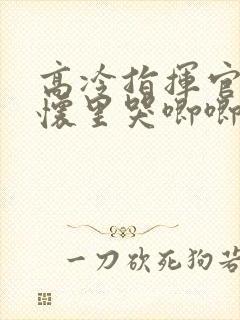 高冷指揮官
懷里哭唧唧
一刀砍死狗若